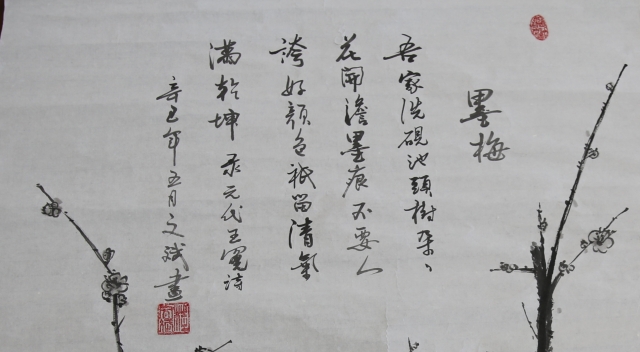 墨梅
吾家洗硯池頭樹朶、
花開澹墨痕不要人
誇好顔色祇留清氣
滿乾坤 录元代王冕詩
辛丑年五月文斌畫